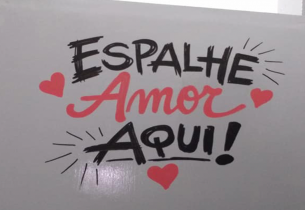 ESPALHE
Amor
AQUI!